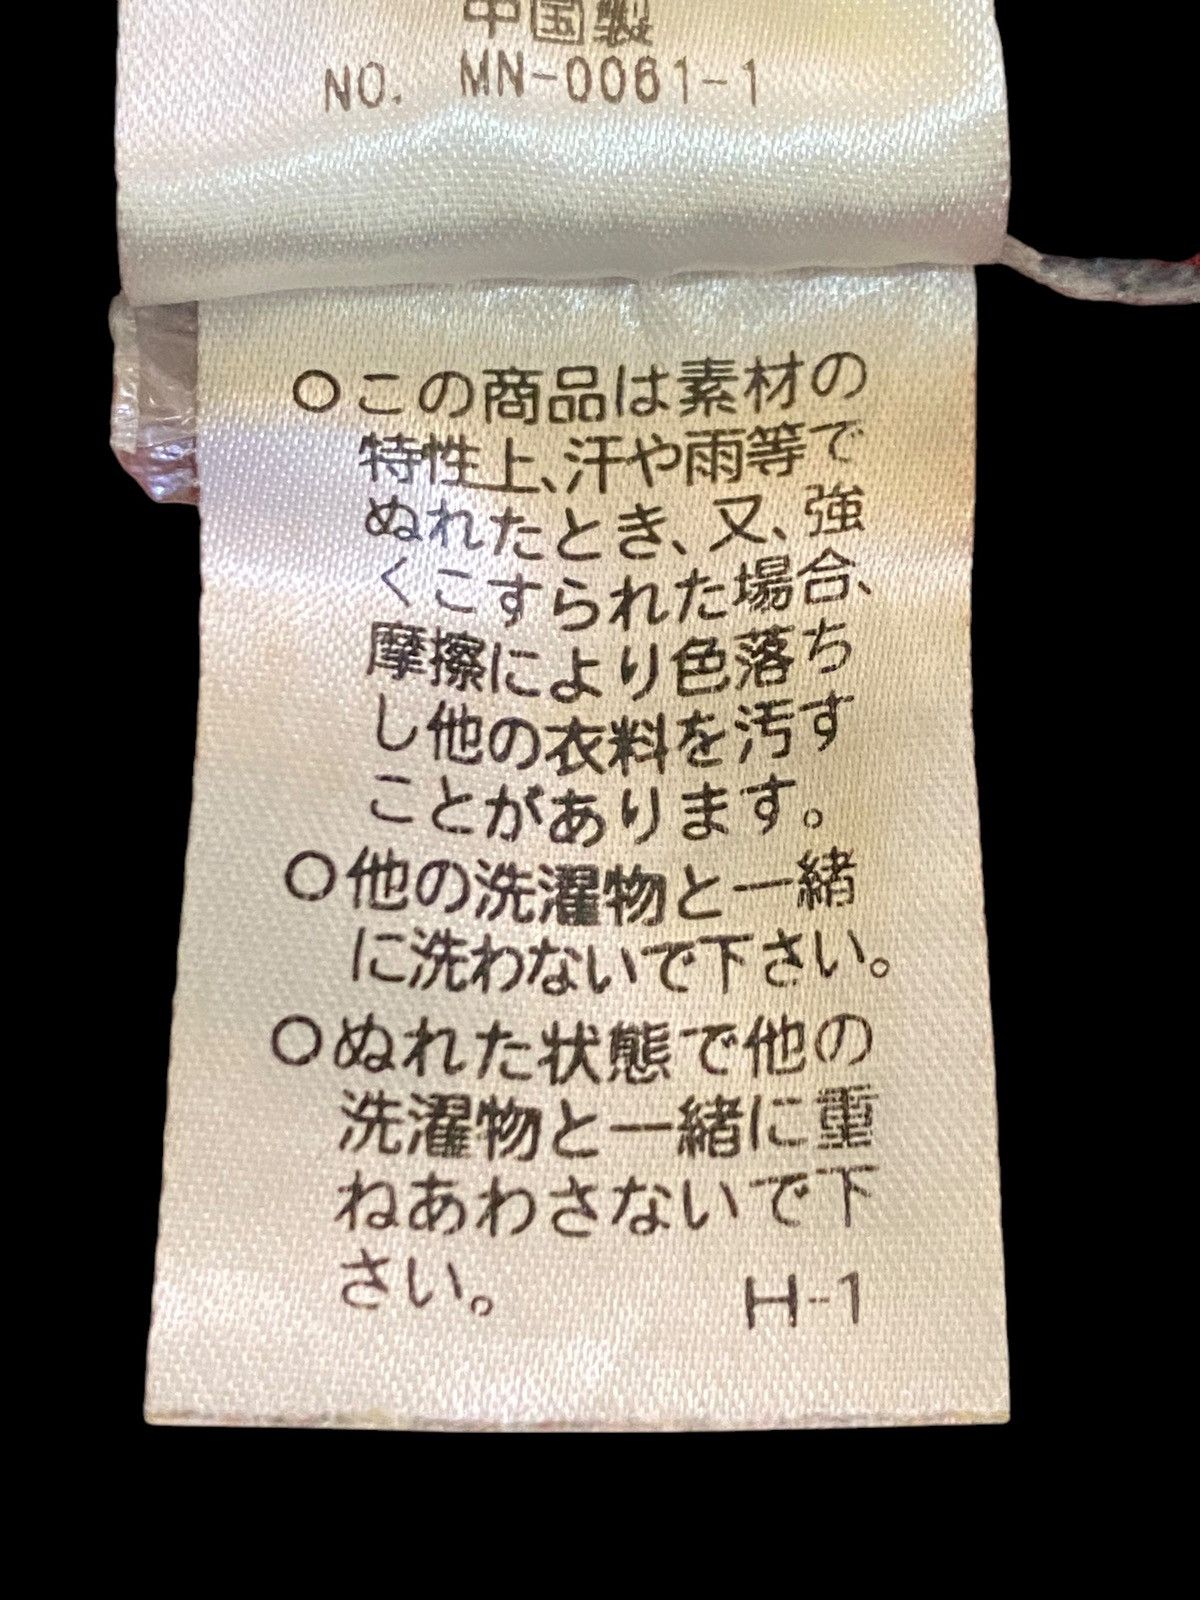 中国製
NO. MN-0061-1
○この商品は素材の
特性上、汗や雨等で
ぬれたとき、又、強
くこすられた場合、
摩擦により色落ち
し他の衣料を汚す
ことがあります。
○他の洗濯物と一緒
に洗わないで下さい。
○ぬれた状態で他の
洗濯物と一緒に重
ねあわさないで下
さい。 H-1